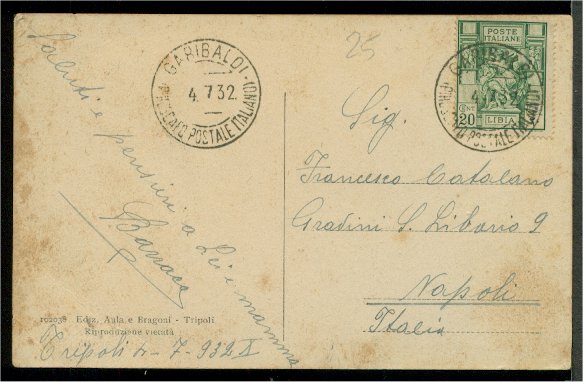 25
GARIBALDI
4.7.32
(PIROSCAFO POSTALE ITALIANO)
POSTE
ITALIANE
CENT
20
LIBIA
GARIBALDI
4
(PIROSCAFO POSTALE ITALIANO)
Saluti e pensieri a Lei e mamma
Sig.
Francesco Catalano
Gradini S. Liborio 9
Napoli
Italia
102038 Ediz. Aula e Bragoni - Tripoli
Riproduzione vietata
Tripoli 4-7-932 X